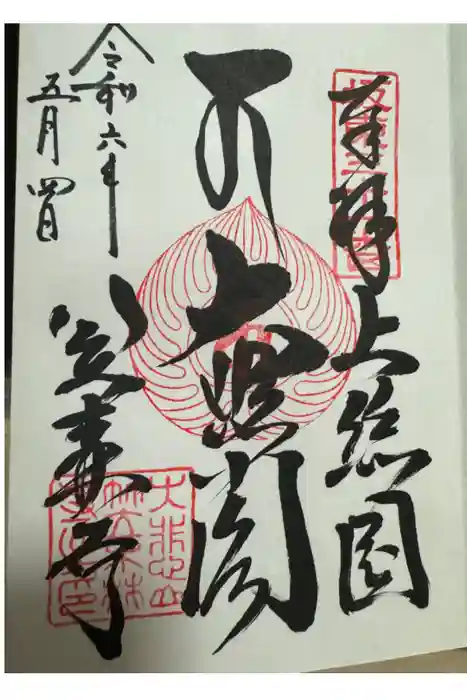 奉拝
上総国
大悲閣
笠森寺
令和六年
五月四日
大悲山